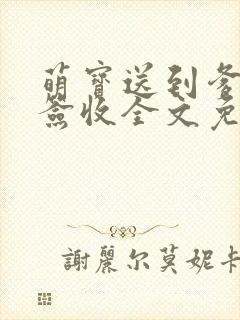 萌寶送到爹
簽收全文免
謝麗尔莫妮卡